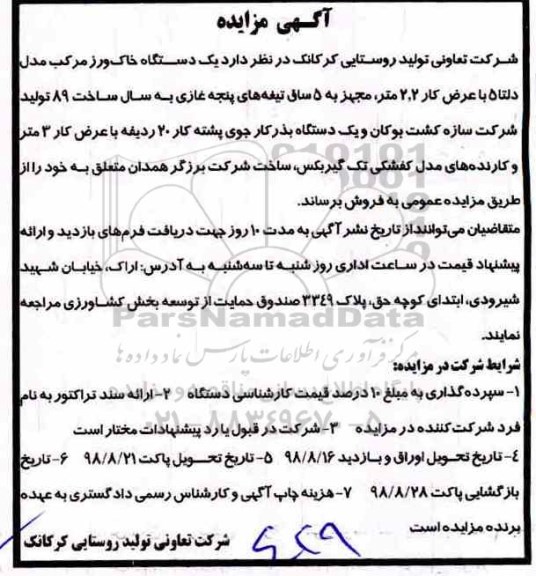 آگهی مزایده
شرکت تعاونی تولید روستایی کرکانک در نظر دارد یک دستگاه خاک‌ورز مرکب مدل
دلتا۵ با عرض کار ۲,۲ متر، مجهز به ۵ ساق تیغه‌های پنجه غازی به سال ساخت ۸۹ تولید
شرکت سازه کشت بوکان و یک دستگاه بذرکار جوی پشته کار ۲۰ ردیفه با عرض کار ۳ متر
و کارنده‌های مدل کفشکی تک گیربکس، ساخت شرکت برزگر همدان متعلق به خود را از
طریق مزایده عمومی به فروش برساند.
متقاضیان می‌توانند از تاریخ نشر آگهی به مدت ۱۰ روز جهت دریافت فرم‌های بازدید و ارائه
پیشنهاد قیمت در ساعت اداری روز شنبه تا سه‌شنبه به آدرس: اراک، خیابان شهید
شیرودی، ابتدای کوچه حق، پلاک ۳۳۴۹ صندوق حمایت از توسعه بخش کشاورزی مراجعه
ParsNamadData
نمایند.
مرکز فرآوری اطلاعات پارس نماد داده‌ها
شرایط شرکت در مزایده:
۱- سپرده‌گذاری به مبلغ ۱۰ درصد قیمت کارشناسی دستگاه ۲- ارائه سند تراکتور به نام
فرد شرکت کننده در مزایده ۳- شرکت در قبول یا رد پیشنهادات مختار است
۰۲۱-۸۸۳۴۹۶۷۰-۵
۴- تاریخ تحویل اوراق و بازدید ۹۸/۸/۱۶ ۵- تاریخ تحویل پاکت ۹۸/۸/۲۱ ۶- تاریخ
بازگشایی پاکت ۹۸/۸/۲۸ ۷- هزینه چاپ آگهی و کارشناس رسمی دادگستری به عهده
برنده مزایده است
شرکت تعاونی تولید روستایی کرکانک